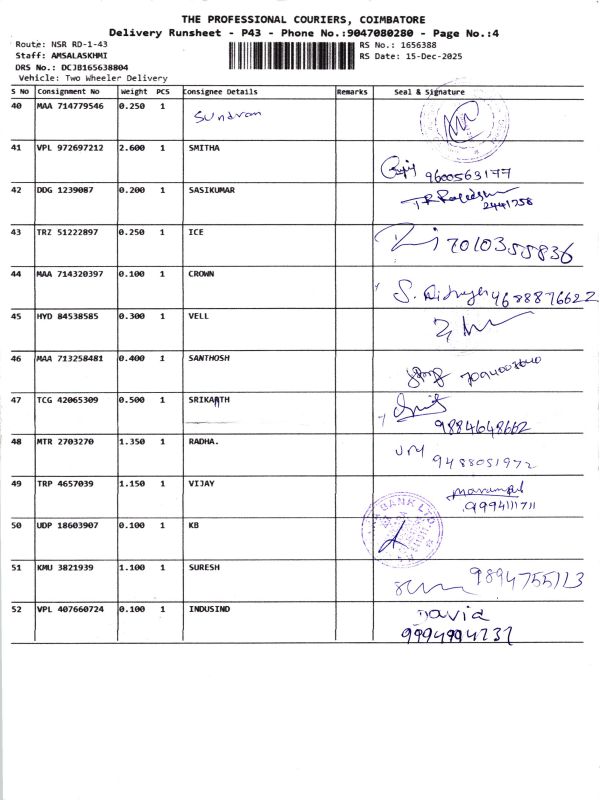 THE PROFESSIONAL COURIERS, COIMBATORE
Delivery Runsheet - P43 - Phone No.:9047080280 - Page No.:4
Route: NSR RD-1-43
RS No.: 1656388
Staff: AMSALASKHMI
RS Date: 15-Dec-2025
DRS No.: DCJB165638804
Vehicle: Two Wheeler Delivery
S No Consignment No Weight PCS Consignee Details Remarks Seal & Signature
40 MAA 714779546 0.250 1 Sundram
41 VPL 972697212 2.600 1 SMITHA
9600563177
42 DDG 1239087 0.200 1 SASIKUMAR
2441758
43 TRZ 51222897 0.250 1 ICE
7010355836
44 MAA 714320397 0.100 1 CROWN
S. 9688876622
45 HYD 84538585 0.300 1 VELL
46 MAA 713258481 0.400 1 SANTHOSH
47 TCG 42065309 0.500 1 SRIKANTH
9884648662
48 MTR 2703270 1.350 1 RADHA.
9488051972
49 TRP 4657039 1.150 1 VIJAY
9994111711
50 UDP 18603907 0.100 1 KB
BANK LTD
51 KMU 3821939 1.100 1 SURESH
9894755113
52 VPL 407660724 0.100 1 INDUSIND
David
9994994737